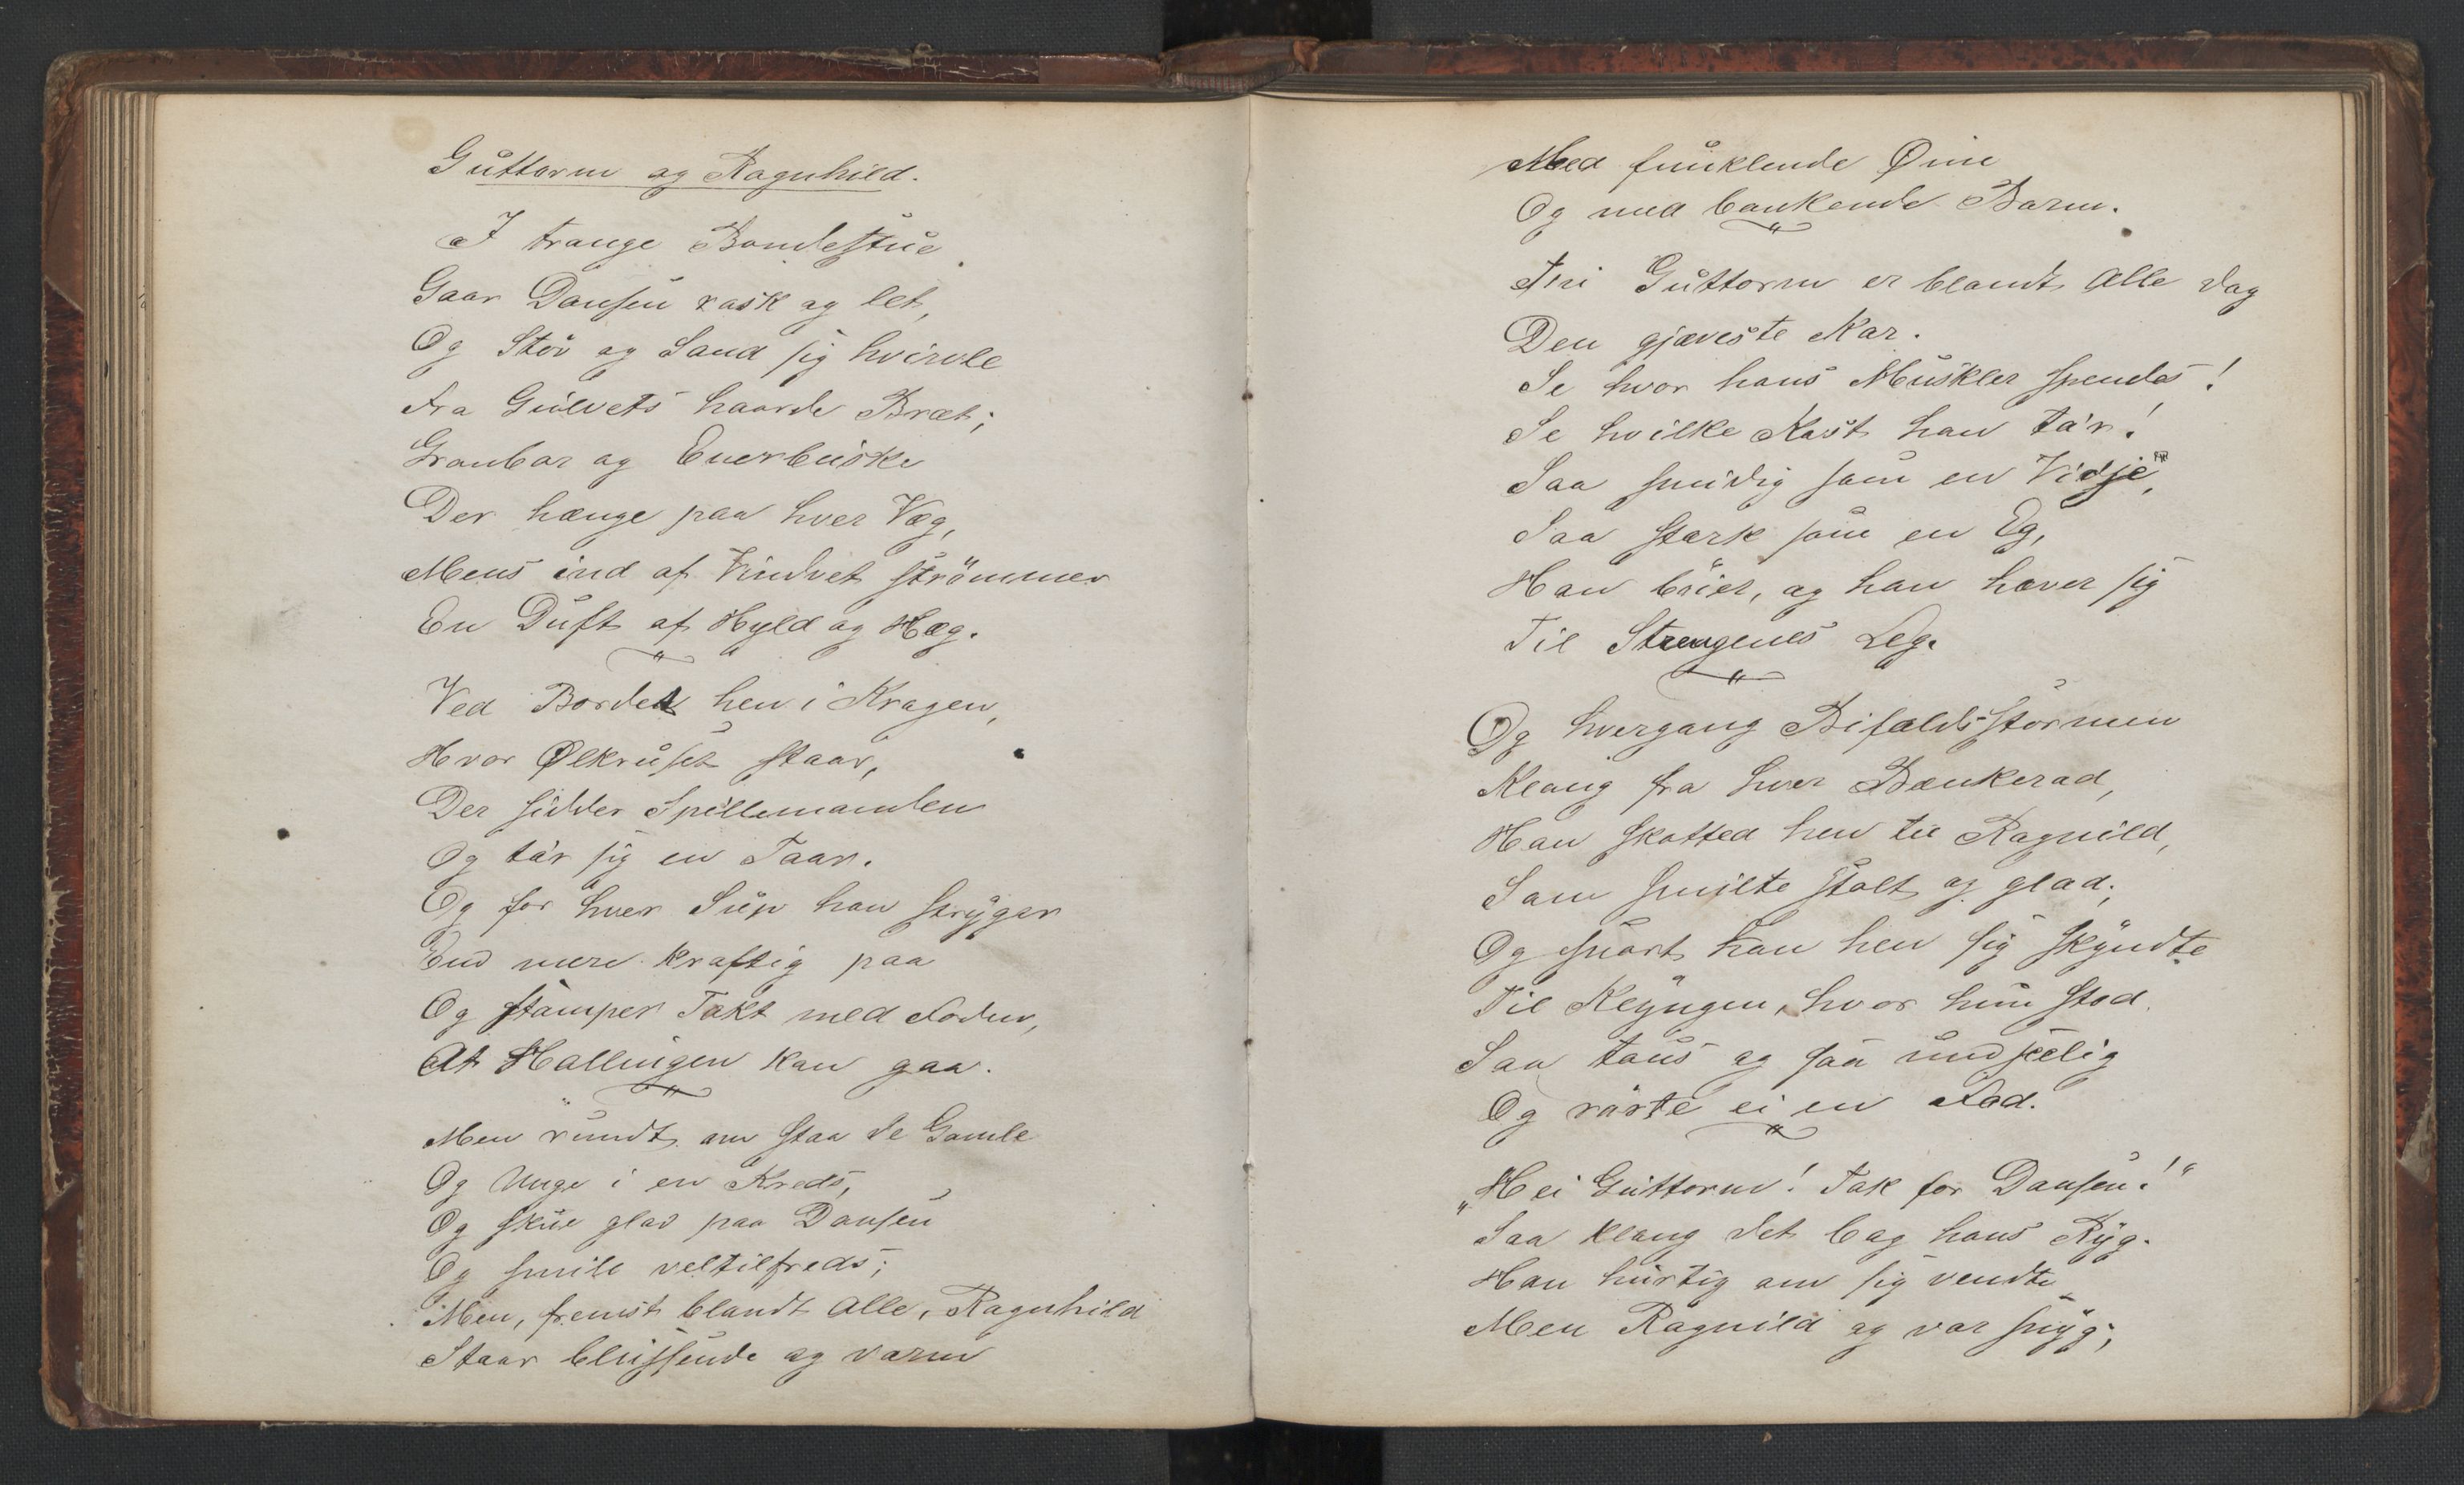 Guttorm og Ragnhild.
I trange Bondestue
Gaar Dansen rask og let,
Og Støv og Sand sig hvirvle
Fra Gulvets haarde Bræt;
Granbar og Enerbuske
Der hænge paa hver Væg,
Mens ind af Vinduet strömmer
En Duft af Hyld og Hæg.
Ved Bordet hen i Kragen,
Hvor Ølkruset staar,
Der sidder Spillemanden
Og ta'r sig en Taar.
Og for hver Sup han stryger
End mere kraftig paa
Og stamper Takt med Foden,
At Hallingen kan gaa.
Men rundt om staa de Gamle
Og Unge i en Kreds,
Og skue glad paa Dansen
Og smile veltilfreds;
Men, fremst blandt Alle, Ragnhild
Staar blussende og varm
Med funklende Øine
Og med bankende Barm.
Thi Guttorm er blandt Alle dog
Den gjæveste Kar.
Se hvor hans Muskler spendes!
Se hvilke Kast han ta'r!
Saa smidig som en Vidje,
Saa stærk som en Eg,
Han böier, og han hæver sig
Til Strengenes Leg.
Og hvergang Bifaldsstormen
Klang fra hver Bænkerad,
Han skotted hen til Ragnild,
Som smilte stolt og glad;
Og snart han hen sig skyndte
Til Klyngen, hvor hun stod.
Saa taus og saa undseelig
Og rörte ei en Fod.
„Hei Guttorm! Tak for Dansen!“
Saa klang det bag hans Ryg.
Han hurtig om sig vendte
Men Ragnild og var snyg;